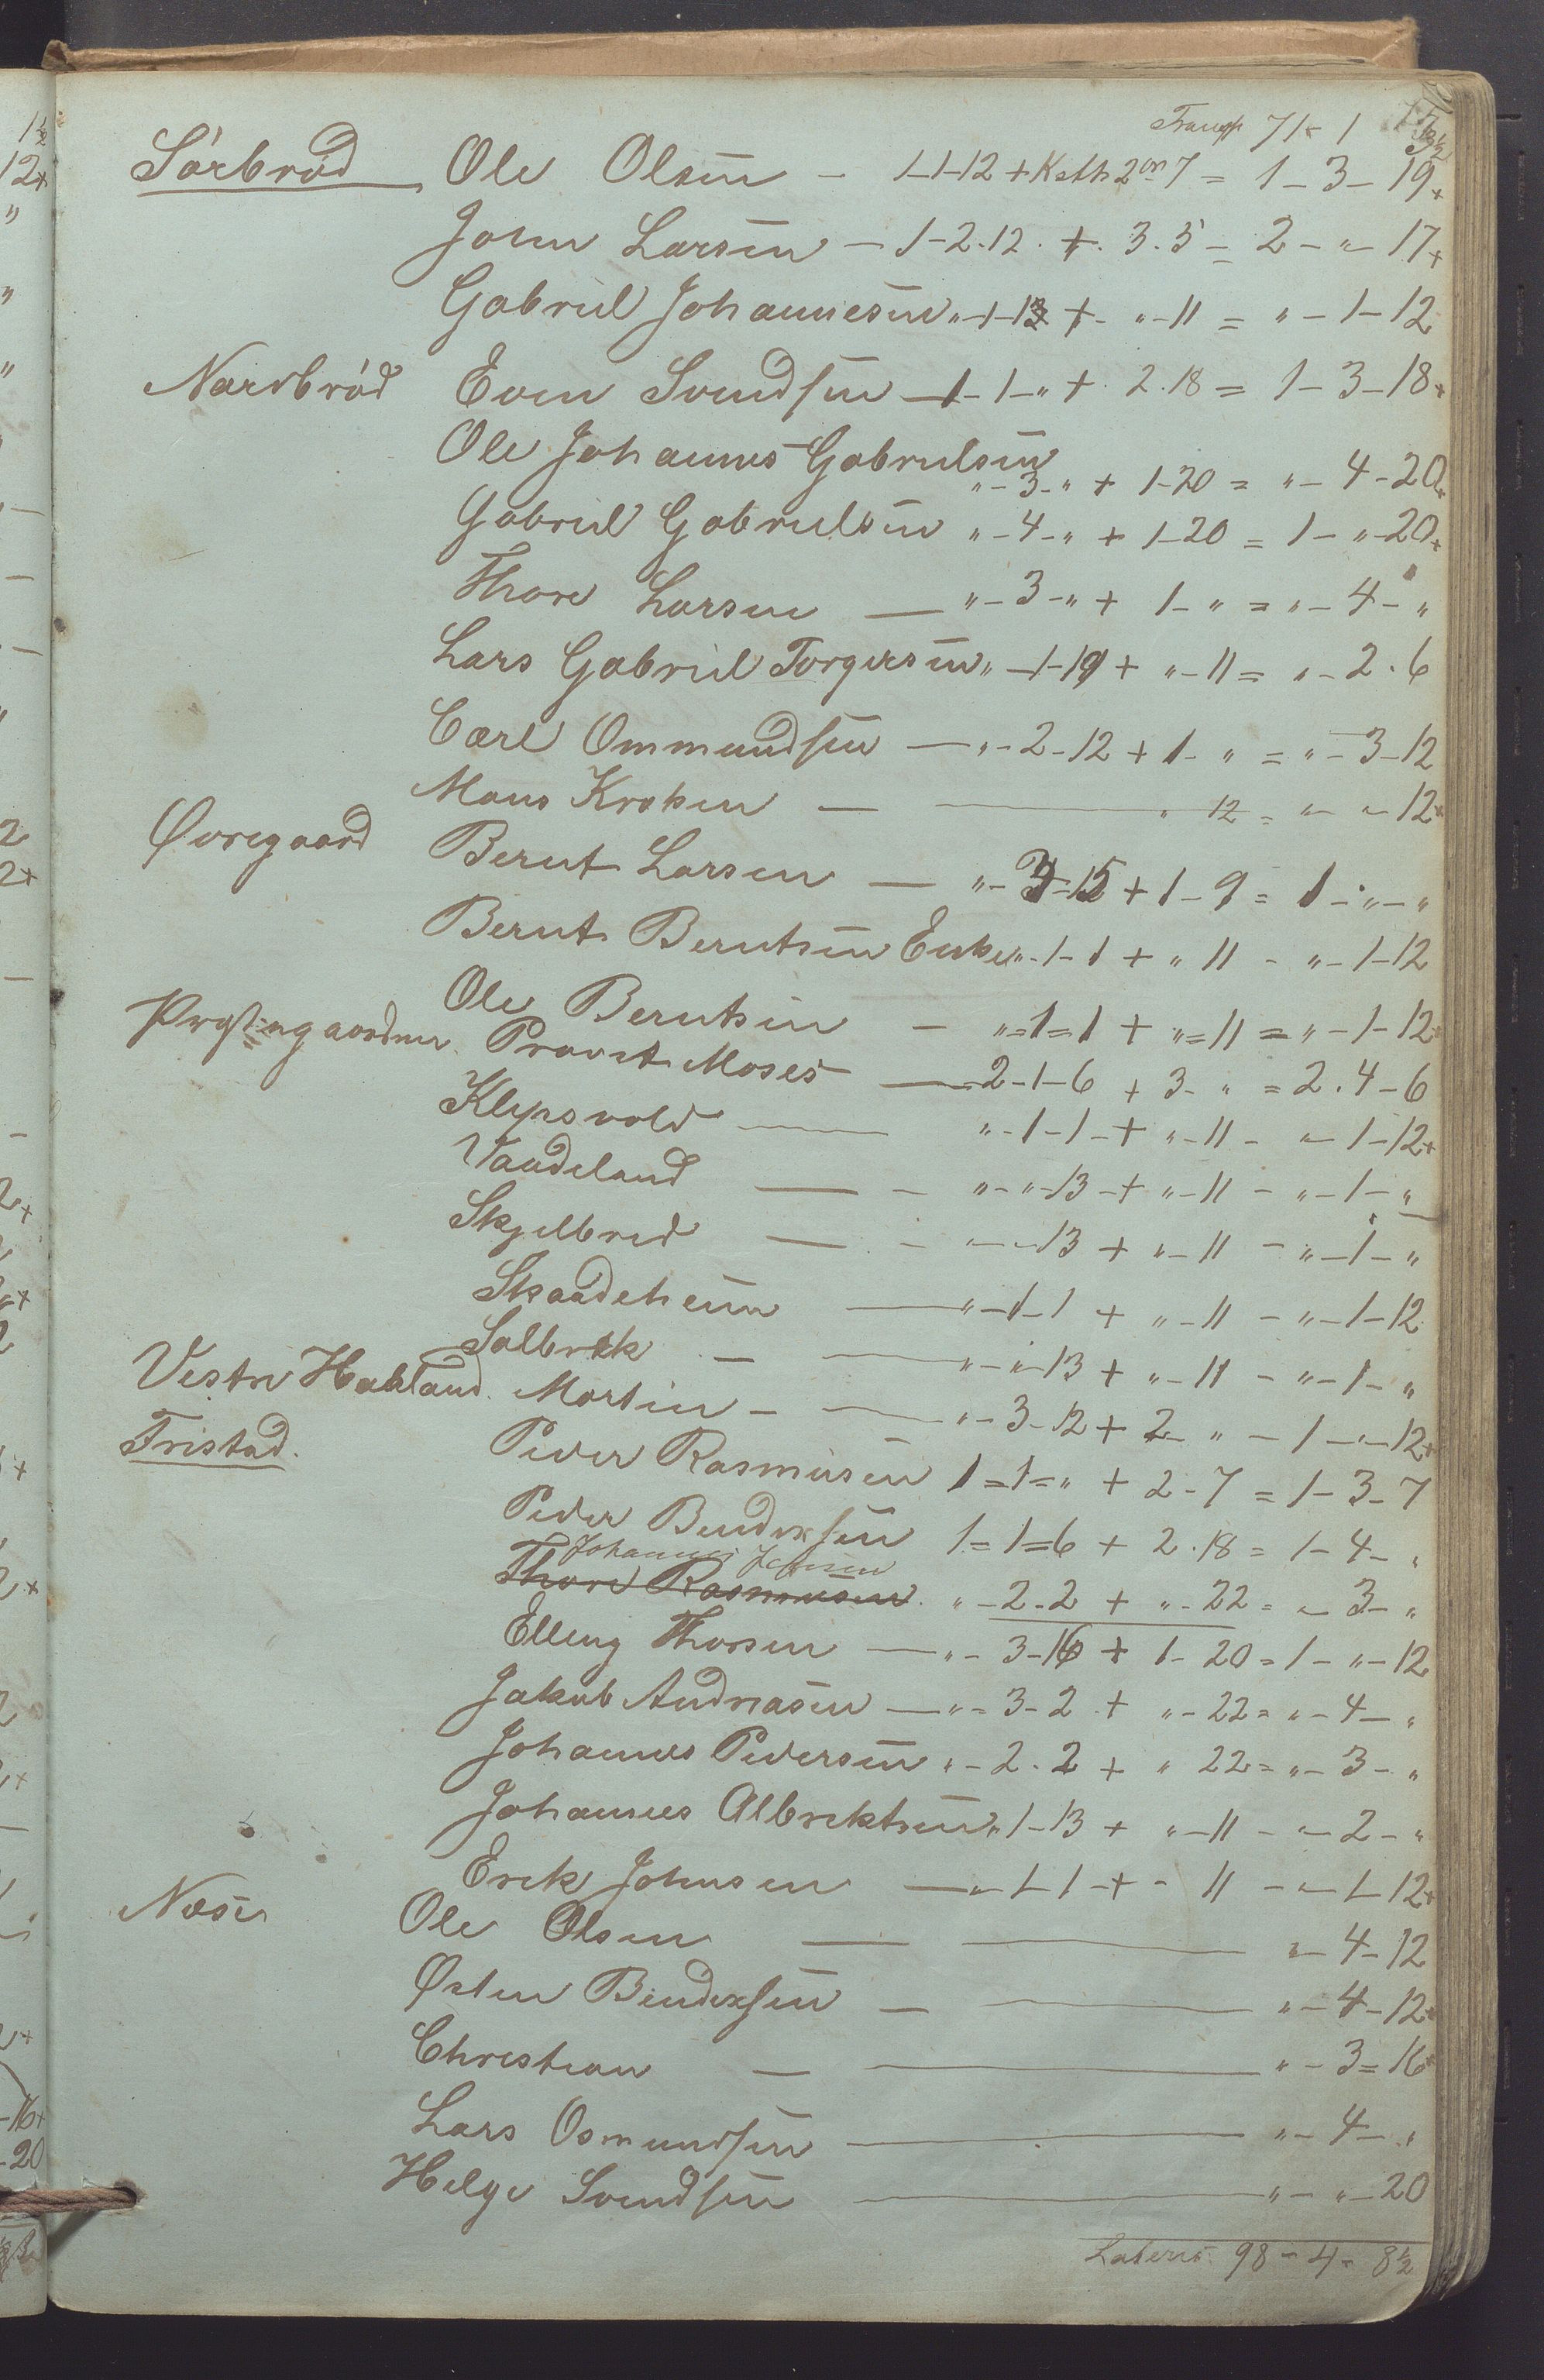 Transp 71 - 1 3½
Sörbröd Ole Olsen - 1-1-12 + Kath 2 on 7 = 1 - 3 - 19+
John Larsen - 1-2.12. +. 3.5 = 2 - " - 17+
Gabriel Johannesen " - 1 - 12 + - " - 11 = " - 1 - 12
Nordbröd Even Svendsen - 1 - 1 - " + 2.18 = 1 - 3 - 18+
Ole Johannes Gabrielsen
" - 3 - " + 1-20 = " - 4 - 20+
Gabriel Gabrielsen " - 4 - " + 1-20 = 1 - " - 20+
Thore Larsen — " - 3 - " + 1 - " = " - 4 - "
Lars Gabriel Torgersen " - 1-19 + " - 11 = " - 2.6
Carl Ommundsen — " - 2 - 12 + 1 - " = " - 3 - 12
Mons Kroken — " 12 = " - " - 12+
Øvregaard Bernt Larsen — " - 3 - 15 + 1 - 9 = 1 - " - "
Bernt Berntsen Enke " - 1 - 1 + " 11 - " - 1 - 12
Ole Berntsen - " = 1 = 1 + " = 11 = " - 1 - 12
Prestegaarden Provst Moses — 2 - 1 - 6 + 3 - " = 2.4 - 6
Klepsvold — " - 1 - 1 - + " - 11 - " - 1 - 12+
Vaadeland — - " - " - 13 - + " - 11 - " - 1 - "
Skjelbred — - " - " - 13 + " - 11 - " - 1 - "
Skaadeheim — " - 1 - 1 + " - 11 - " - 1 - 12
Solbrek - — " - " - 13 + " - 11 - " - 1 - "
Vestre Haaland Martin - — " - 3 - 12 + 2 - " - 1 - " - 12+
Tristad. Peder Rasmusen 1 = 1 = " + 2 - 7 = 1 - 3 - 7
Peder Bendixsen 1 = 1 = 6 + 2.18 = 1 - 4 - "
Johannes
Thore Rasmusen. " - 2 - 2 + " - 22 = " - 3 - "
Elling Thorsen — " - 3 - 16 + 1 - 20 = 1 - " - 12
Jakob Andreasen — " = 3 - 2 + " - 22 = " - 4 - "
Johannes Pedersen " - 2.2 + " 22 = " - 3 - "
Johannes Albrektsen " 1 - 13 + " - 11 - " - 2 - "
Erek Johnsen — " - 1 - 1 - + - 11 - " - 1 - 12+
Nese Ole Olsen — " - 4 - 12
Østen Bendixsen — " - 4 - 12+
Christian — " - 3 = 16+
Lars Osmundsen — " - 4 - "
Helge Svendsen — " - " - 20
Lateris 98 - 4 - 8½